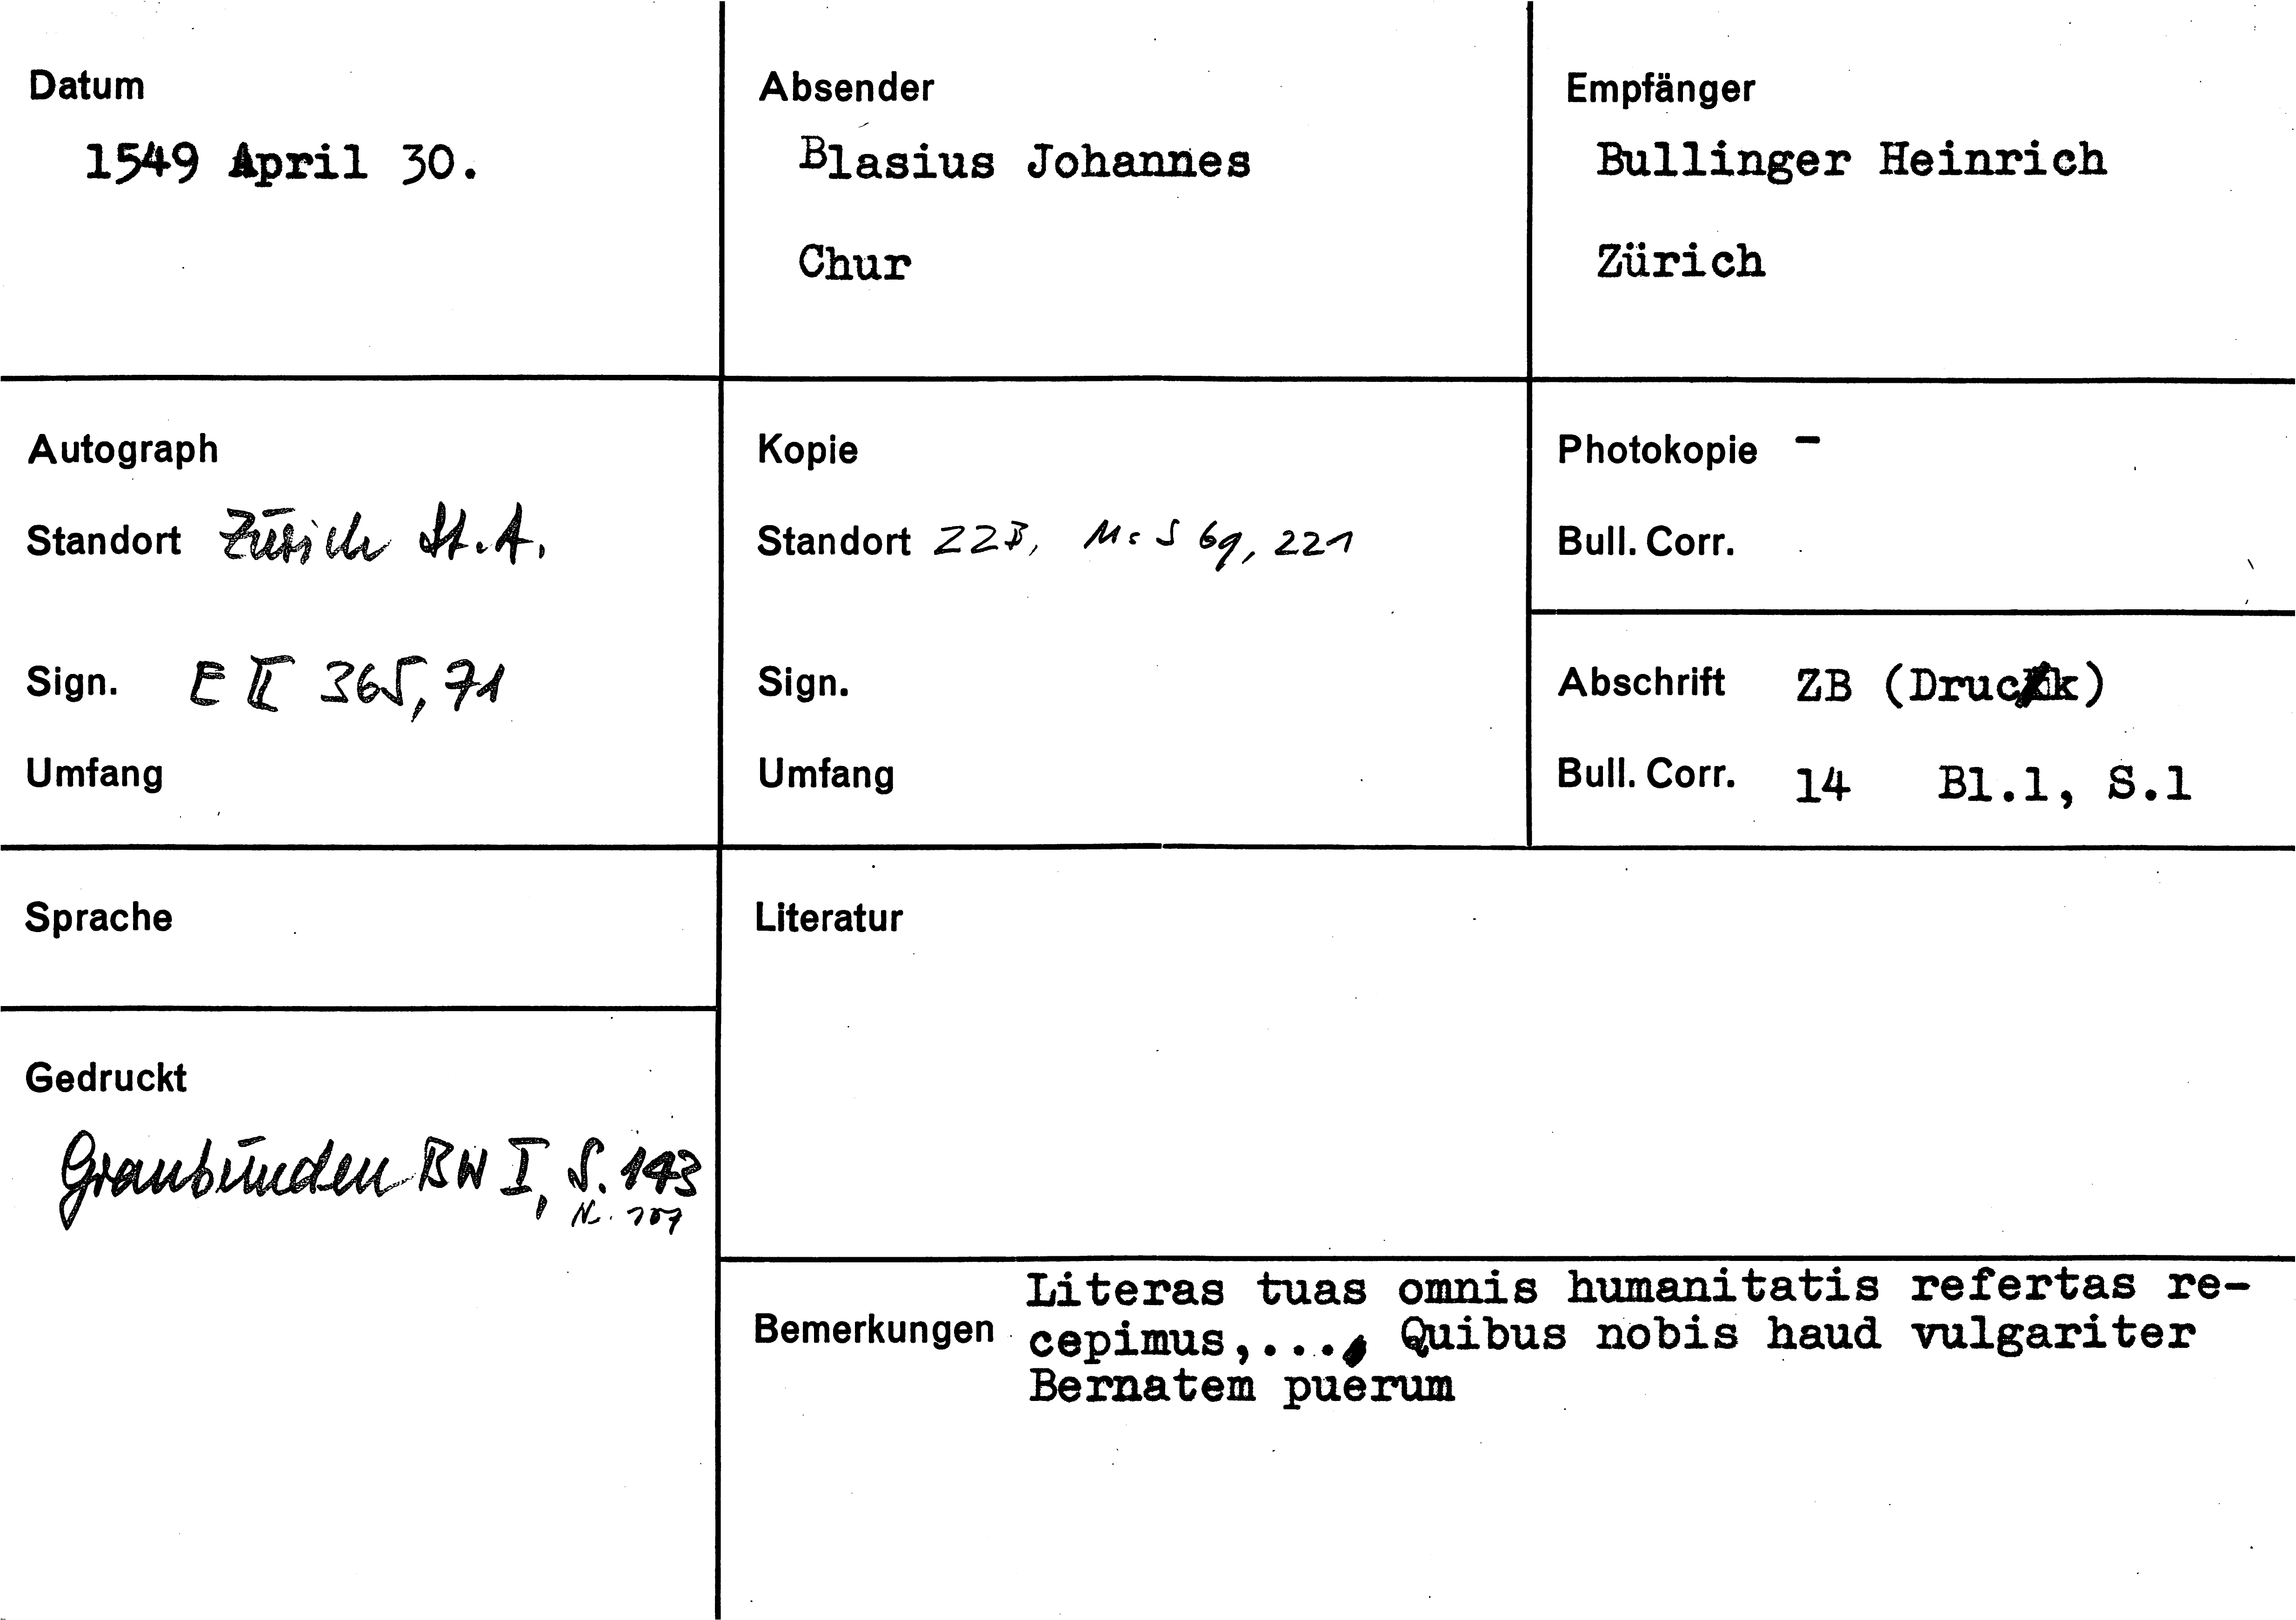 Datum
1549 April 30.
Absender
Blasius Johannes
Chur
Empfänger
Bullinger Heinrich
Zürich
Autograph
Standort Zürich St.A.
Sign. E II 365, 71
Umfang
Kopie
Standort ZZB, Ms S 69, 221
Sign.
Umfang
Photokopie -
Bull. Corr.
Abschrift ZB (Druck)
Bull. Corr. 14 Bl.1, S.1
Sprache
Gedruckt
Graubünden BW I, S. 143
Nr. 107
Literatur
Bemerkungen
Literas tuas omnis humanitatis refertas re-
cepimus,... Quibus nobis haud vulgariter
Bernatem puerum